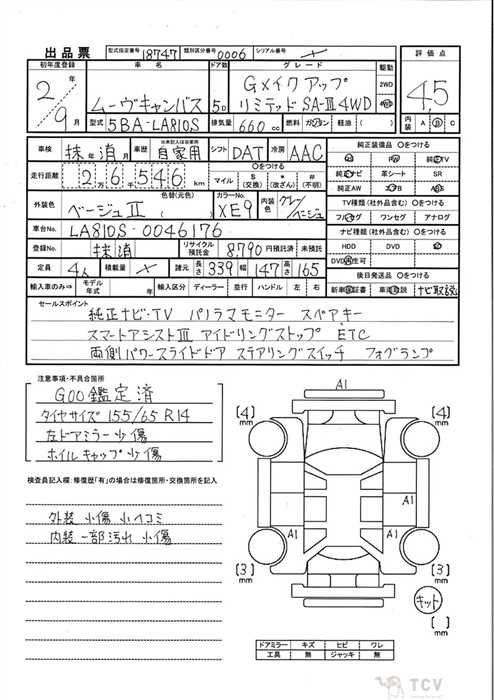 出品票 型式指定番号 18747 類別区分番号 0006 シリアル番号
初年度登録 車名 ドア数 グレード 駆動 評価点
2年9月 ムーヴキャンバス 5D Gメイクアップ リミテッド SA-Ⅲ 4WD 2WD 4WD 4.5
型式 5BA-LA810S 排気量 660cc 燃料 ガソリン 軽油 ( ) 内装 A B C
車検 抹消 車歴 自家用 シフト DAT 冷房 AAC
純正装備品 ○をつける
PW 純正TV
走行距離 26,546 km マイル $(交換) *(改ざん) #(不明) ○をつける
純正ナビ 革シート SR
純正AW ABS
外装色 ベージュⅡ 色替(元色) カラーNo. XE9 内装色 グレー/ベージュ
TV種類(社外品含む) ○をつける
フルセグ ワンセグ アナログ
車台No. LA810S-0046176
ナビ種類(社外品含む) ○をつける
登録No. 抹消 リサイクル預託金 8,790 円預託済 未預託
HDD DVD
DVD再生可
定員 4人 積載量 諸元 長さ 339 幅 147 高さ 165
後日発送品 ○をつける
輸入車のみ→ モデル年式 年式 輸入区分 ディーラー 並行 ハンドル 左 右
新車保証書 車両取説 ナビ取説
セールスポイント
純正ナビ・TV パノラマモニター スペアキー
スマートアシストⅢ アイドリングストップ ETC
両側パワースライドドア ステアリングスイッチ フォグランプ
注意事項・不具合箇所
GOO鑑定済
タイヤサイズ 155/65 R14
左ドアミラー 少傷
ホイルキャップ 少傷
検査員記入欄:修復歴「有」の場合は修復箇所・交換箇所を記入
外装 小傷 小ヘコミ
内装 一部汚れ 小傷
A1
[4] mm [4] mm
A1
A1 A1
[3] mm [3] mm
キット
[ ] mm
ドアミラー キズ ヒビ ワレ
工具 無 ジャッキ 無
TCV